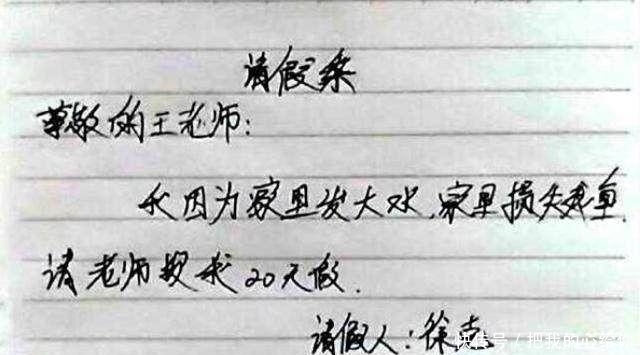 请假条
尊敬的王老师:
我因为家里发大水.家里损失残重.
请老师授我20天假.
请假人:徐
快传号/把我的心